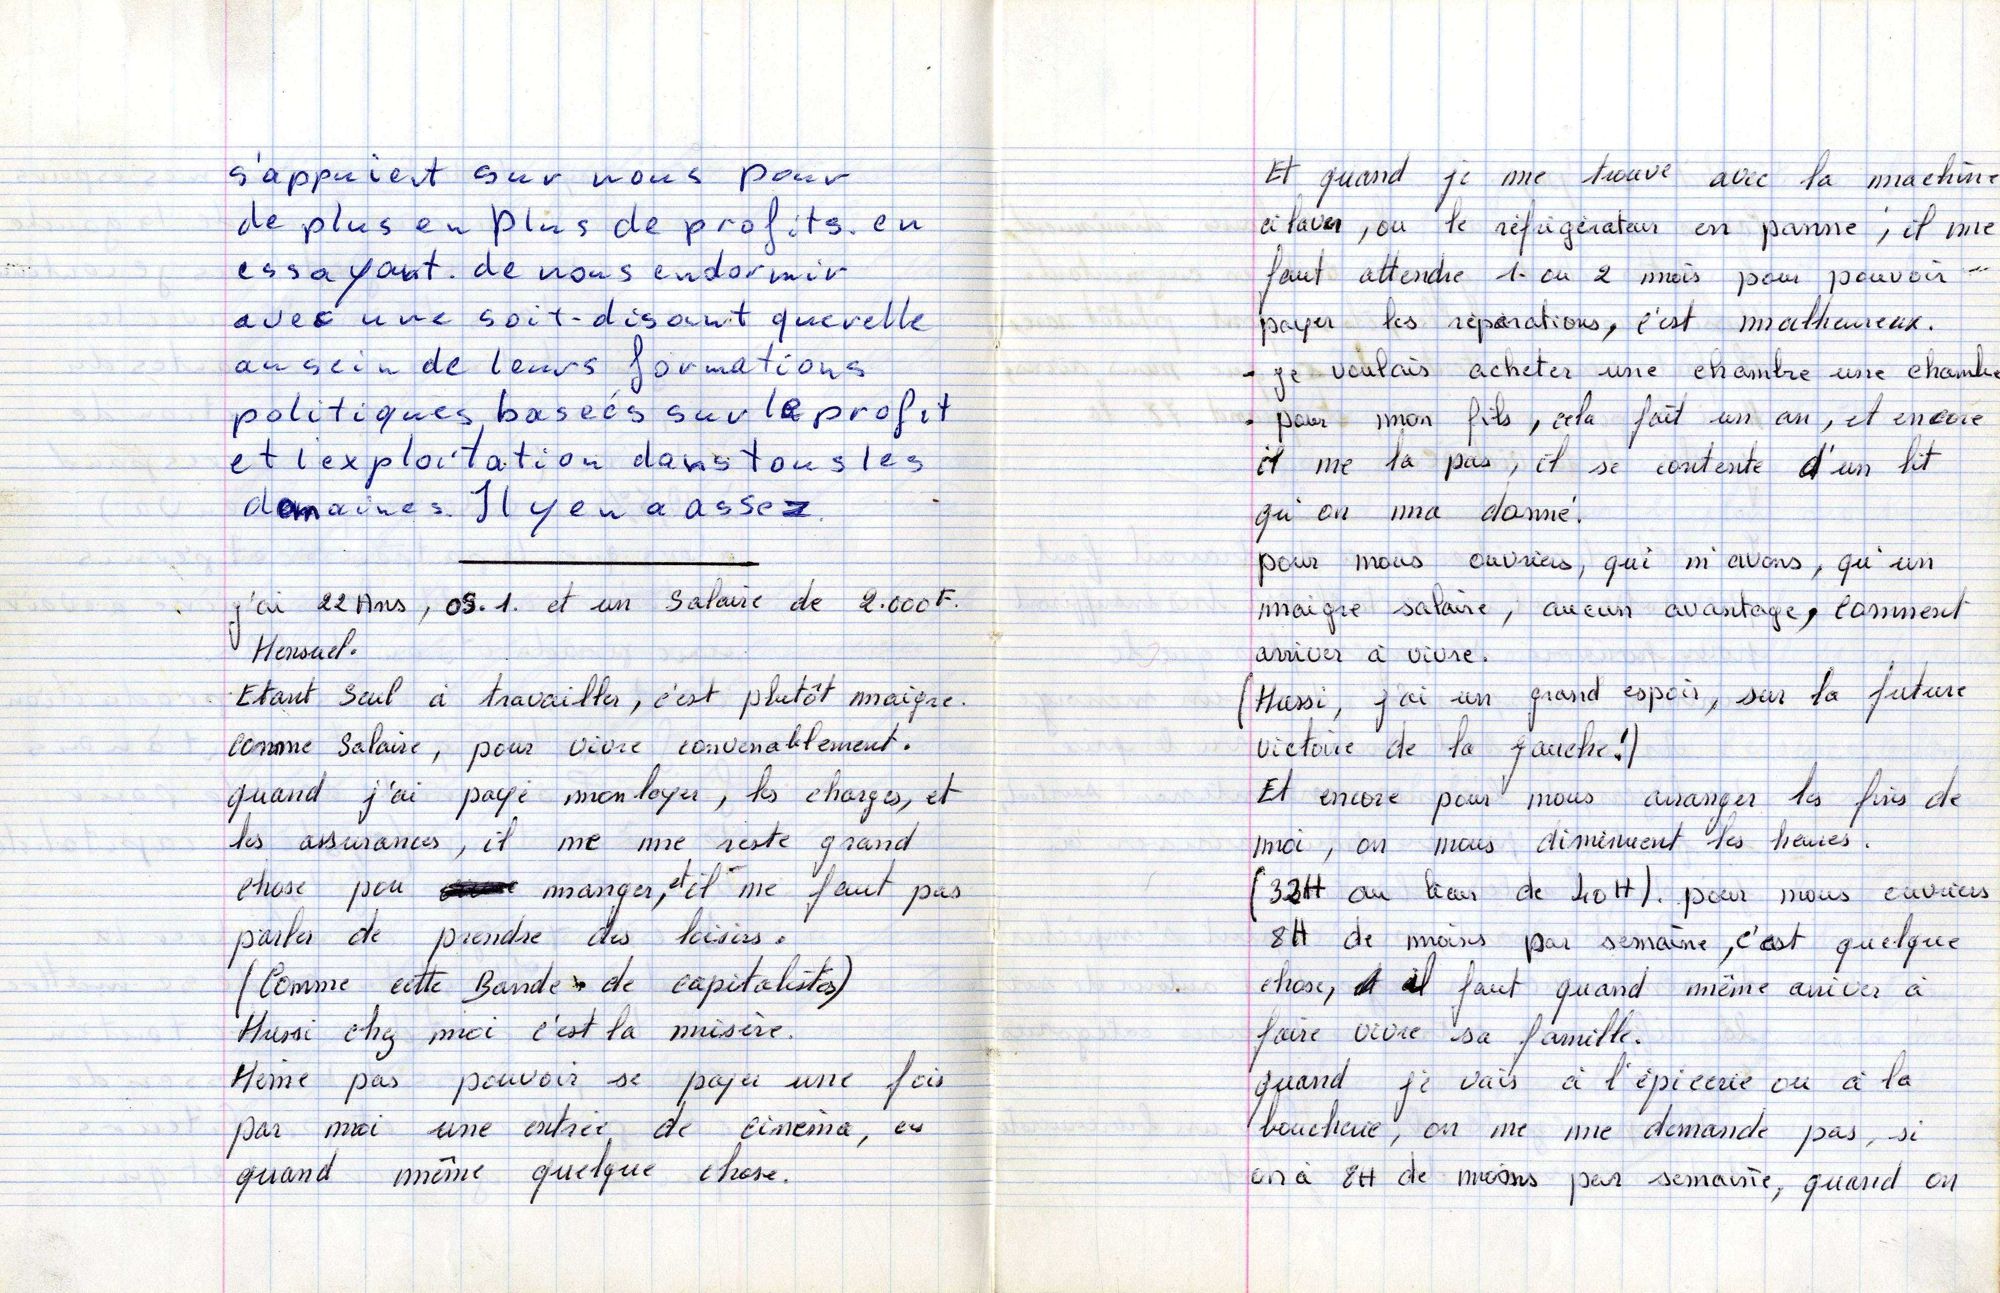 s'appuient sur nous pour
de plus en plus de profits. en
essayant. de nous endormir
avec une soit-disant querelle
au sein de leurs formations
politiques, baseés sur le profit
et l'exploitation dans tous les
domaines. Il y en a assez.
j'ai 22 Ans, OS.1. et un Salaire de 2.000F.
Mensuel.
Etant Seul à travailler, c'est plutôt maigre.
comme Salaire, pour vivre convenablement.
quand j'ai payé mon loyer, les charges, et
les assurances, il ne me reste grand
chose pou manger, et il ne faut pas
parler de prendre des loisirs.
(Comme cette Bande de capitalistes)
Aussi chez moi c'est la misère.
Même pas pouvoir se payer une fois
par moi une entrée de cinéma,
quand même quelque chose.
Et quand je me trouve avec la machine
à laver, ou le réfrigérateur en panne, il me
faut attendre 1 ou 2 mois pour pouvoir
payer les réparations, c'est malheureux.
- je voulais acheter une chambre une chambre
- pour mon fils, cela fait un an, et encore
il ne la pas, il se contente d'un lit
qu'on ma donné.
pour nous ouvriers, qui n'avons, qu'un
maigre salaire, aucun avantage, comment
arriver à vivre.
(Aussi, j'ai un grand espoir, sur la future
victoire de la gauche!)
Et encore pour nous arranger les fins de
moi, on nous diminuent les heures.
(32H au lieu de 40H). pour nous ouvriers
8H de moins par semaine, c'est quelque
chose, il faut quand même arriver à
faire vivre sa famille.
quand je vais à l'épicerie ou à la
boucherie, on ne me demande pas, si
on à 8H de moins par semaine, quand on